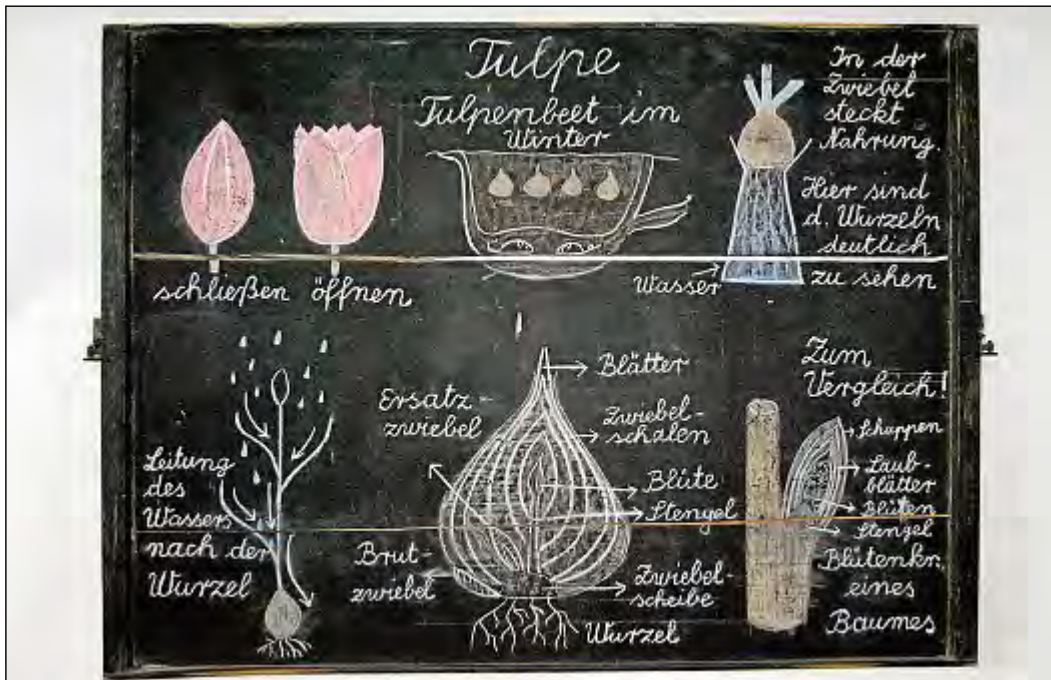 Tulpe
Tulpenbeet im
Winter
schließen öffnen
In der
Zwiebel
steckt
Nahrung.
Hier sind
d. Wurzeln
deutlich
zu sehen
Wasser
Leitung
des
Wassers
nach der
Wurzel
Ersatz-
zwiebel
Brut-
zwiebel
Blätter
Zwiebel-
schalen
Blüte
Stengel
Zwiebel-
scheibe
Wurzel
Zum
Vergleich!
Schuppen
Laub-
blätter
Blüten
Stengel
Blütenkn.
eines
Baumes